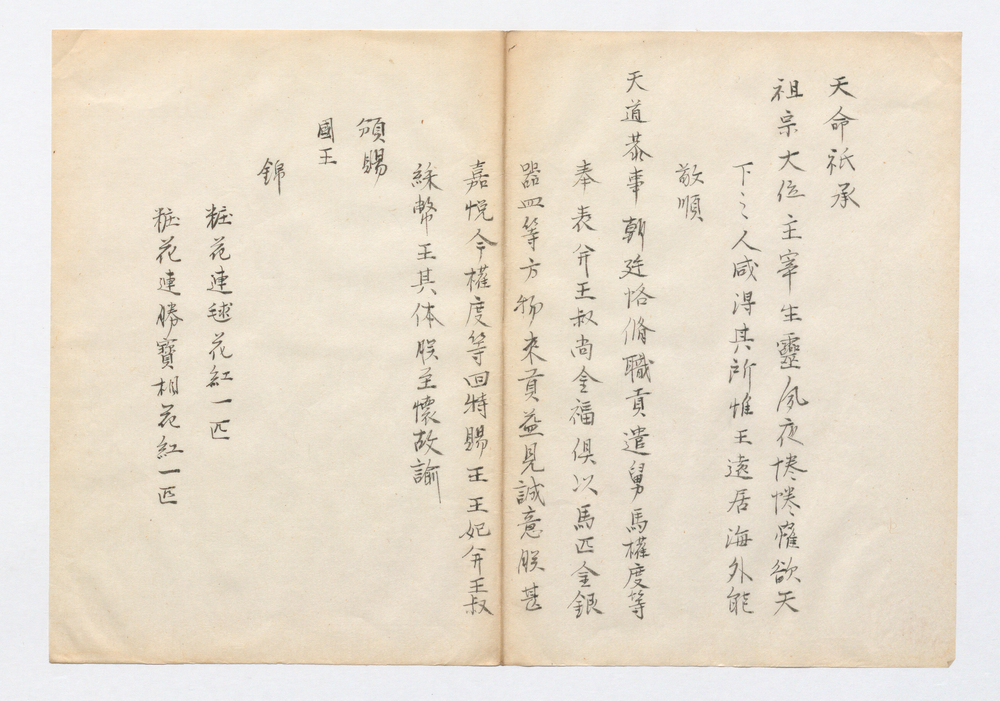 天命祇承
祖宗大位主宰生靈夙夜惓惓惟欲天
下之人咸得其所惟王遠居海外能
敬順
天道恭事朝廷恪脩職貢遣舅馬權度等
奉表并王叔尚金福俱以馬匹金銀
器皿等方物來貢益見誠意朕甚
嘉悅今權度等回特賜王王妃并王叔
綵幣王其体朕至懷故諭
頒賜
國王
錦
粧花連毬花紅一匹
粧花連勝寶相花紅一匹